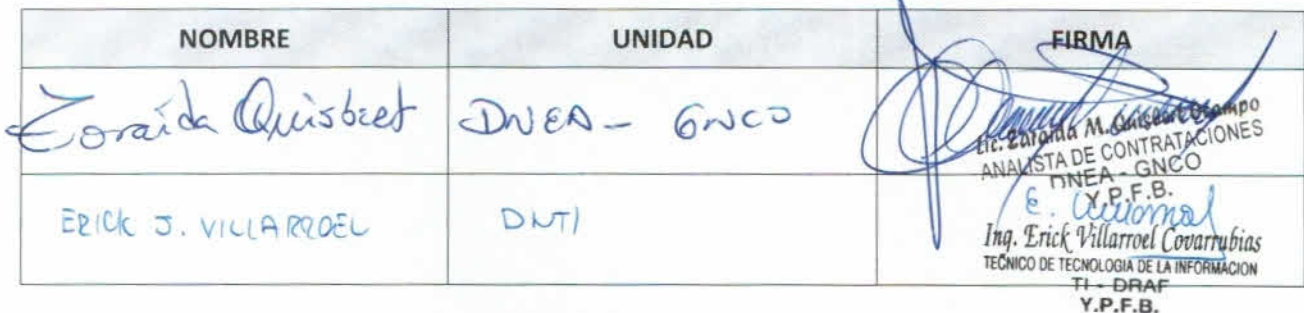 NOMBRE UNIDAD FIRMA
Zoraida Quisbert DNEA - GNCO
Lic. Zoraida M. Quisbert Ocampo
ANALISTA DE CONTRATACIONES
DNEA - GNCO
Y.P.F.B.
ERICK J. VILLARROEL DNTI
Ing. Erick Villarroel Covarrubias
TECNICO DE TECNOLOGIA DE LA INFORMACION
TI - DRAF
Y.P.F.B.